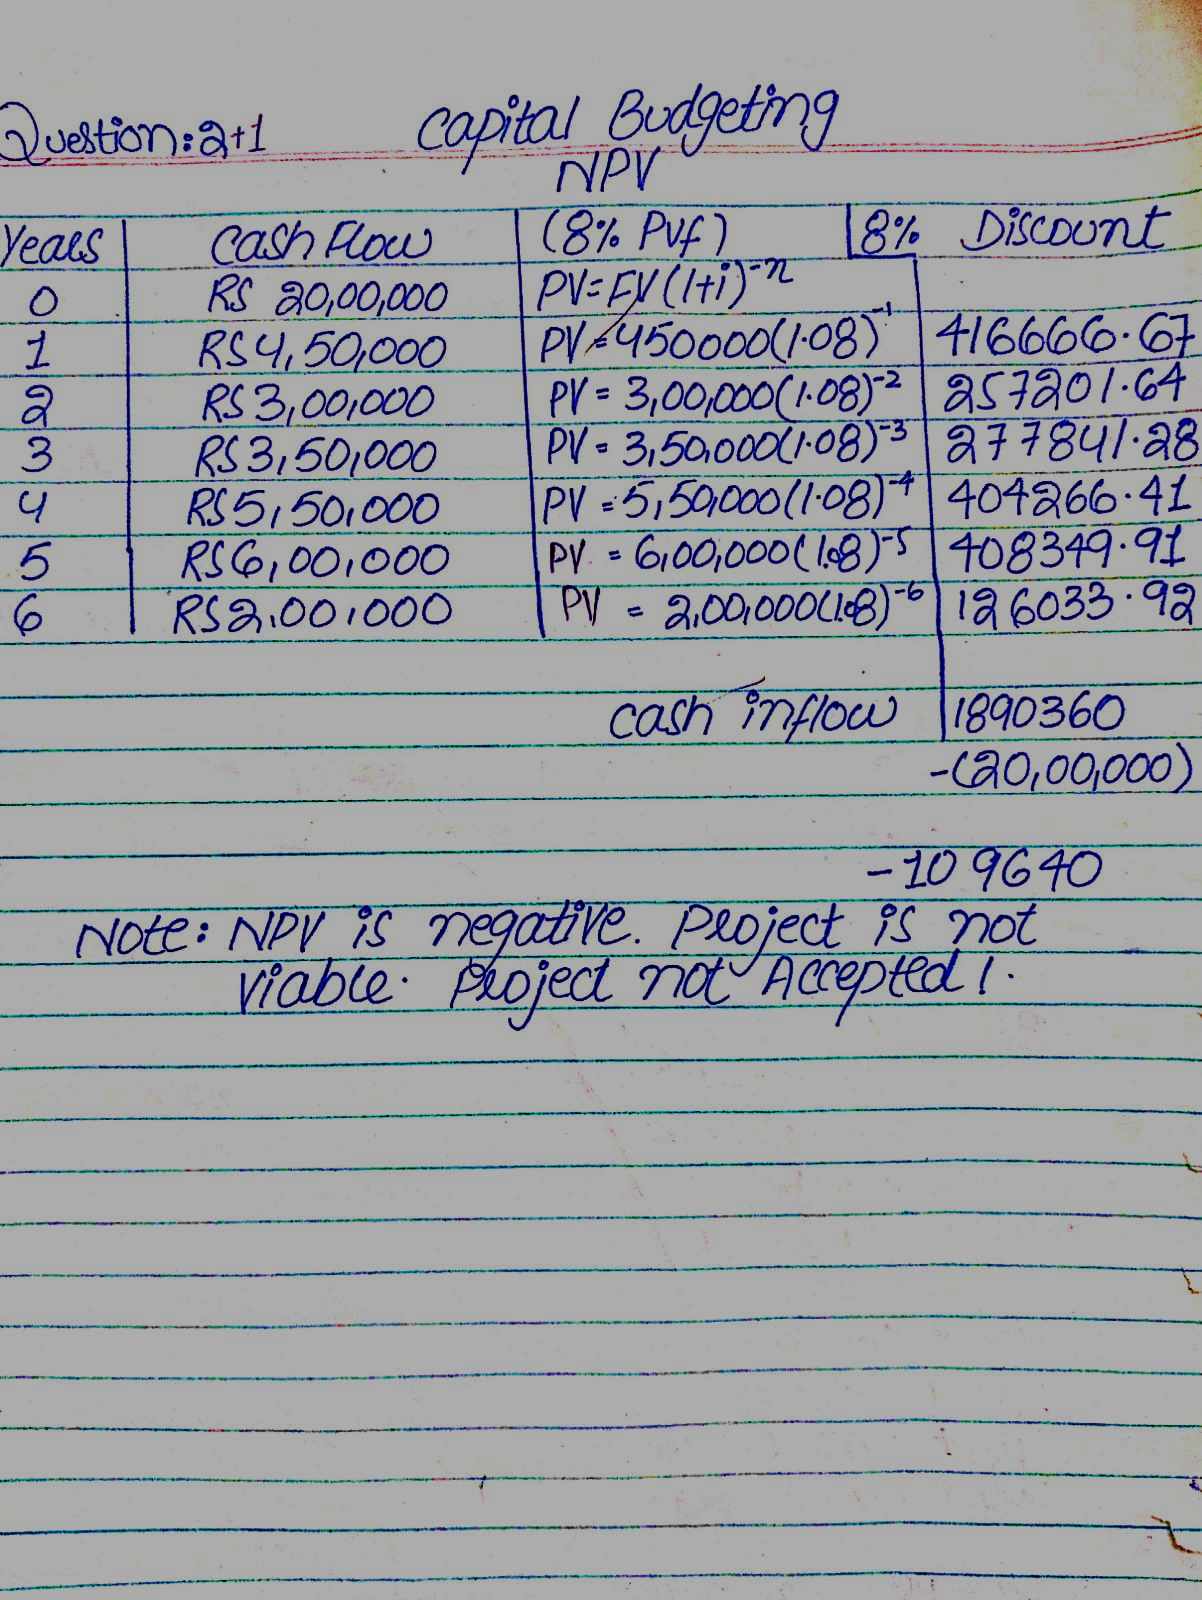 Question: 2+1 Capital Budgeting
NPV
Years Cash Flow (8% PVf) 8% Discount
0 RS 20,00,000 PV=FV(1+i)^-n
1 RS 4,50,000 PV=450000(1.08)^-1 416666.67
2 RS 3,00,000 PV = 3,00,000(1.08)^-2 257201.64
3 RS 3,50,000 PV = 3,50,000(1.08)^-3 277841.28
4 RS 5,50,000 PV = 5,50,000(1.08)^-4 404266.41
5 RS 6,00,000 PV = 6,00,000(1.08)^-5 408349.91
6 RS 2,00,000 PV = 2,00,000(1.08)^-6 126033.92
cash inflow 1890360
-(20,00,000)
-109640
Note: NPV is negative. Project is not
viable. Project not Accepted!.